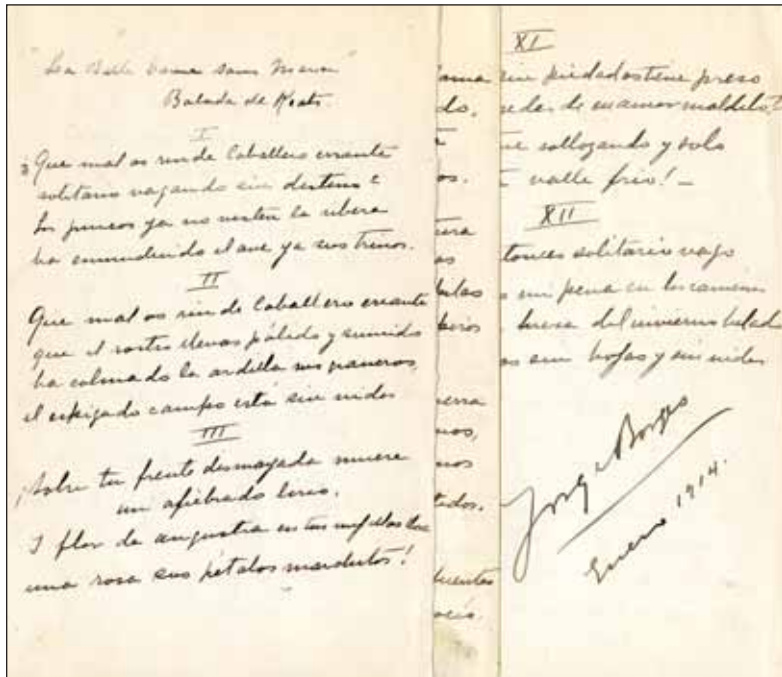 "La Belle Dame sans Merci"
Balada de Keats.
I
¿Que mal os rinde Caballero errante
solitario vagando sin destino?
Los juncos ya no visten la ribera
ha enmudecido el ave ya sus trinos.
II
Que mal os rinde Caballero errante
que el rostro llevas pálido y sumido
ha colmado la ardilla sus graneros
el espigado campo está sin nidos
III
¡Sobre tu frente desmayada muere
un afiebrado lirio,
I flor de angustia en tus mejillas
una rosa sus pétalos marchitos!
do.
os.
erra
nos
tidos.
uentes
ocío.
XI
sin piedad os tiene preso
redes de su amor maldito!"
sollozando y solo
valle frio! —
XII
tonces solitario vago
mi pena en los caminos
brisa del invierno helada
sin hojas y sin nidos
Jorge Borges
Enero 1914.